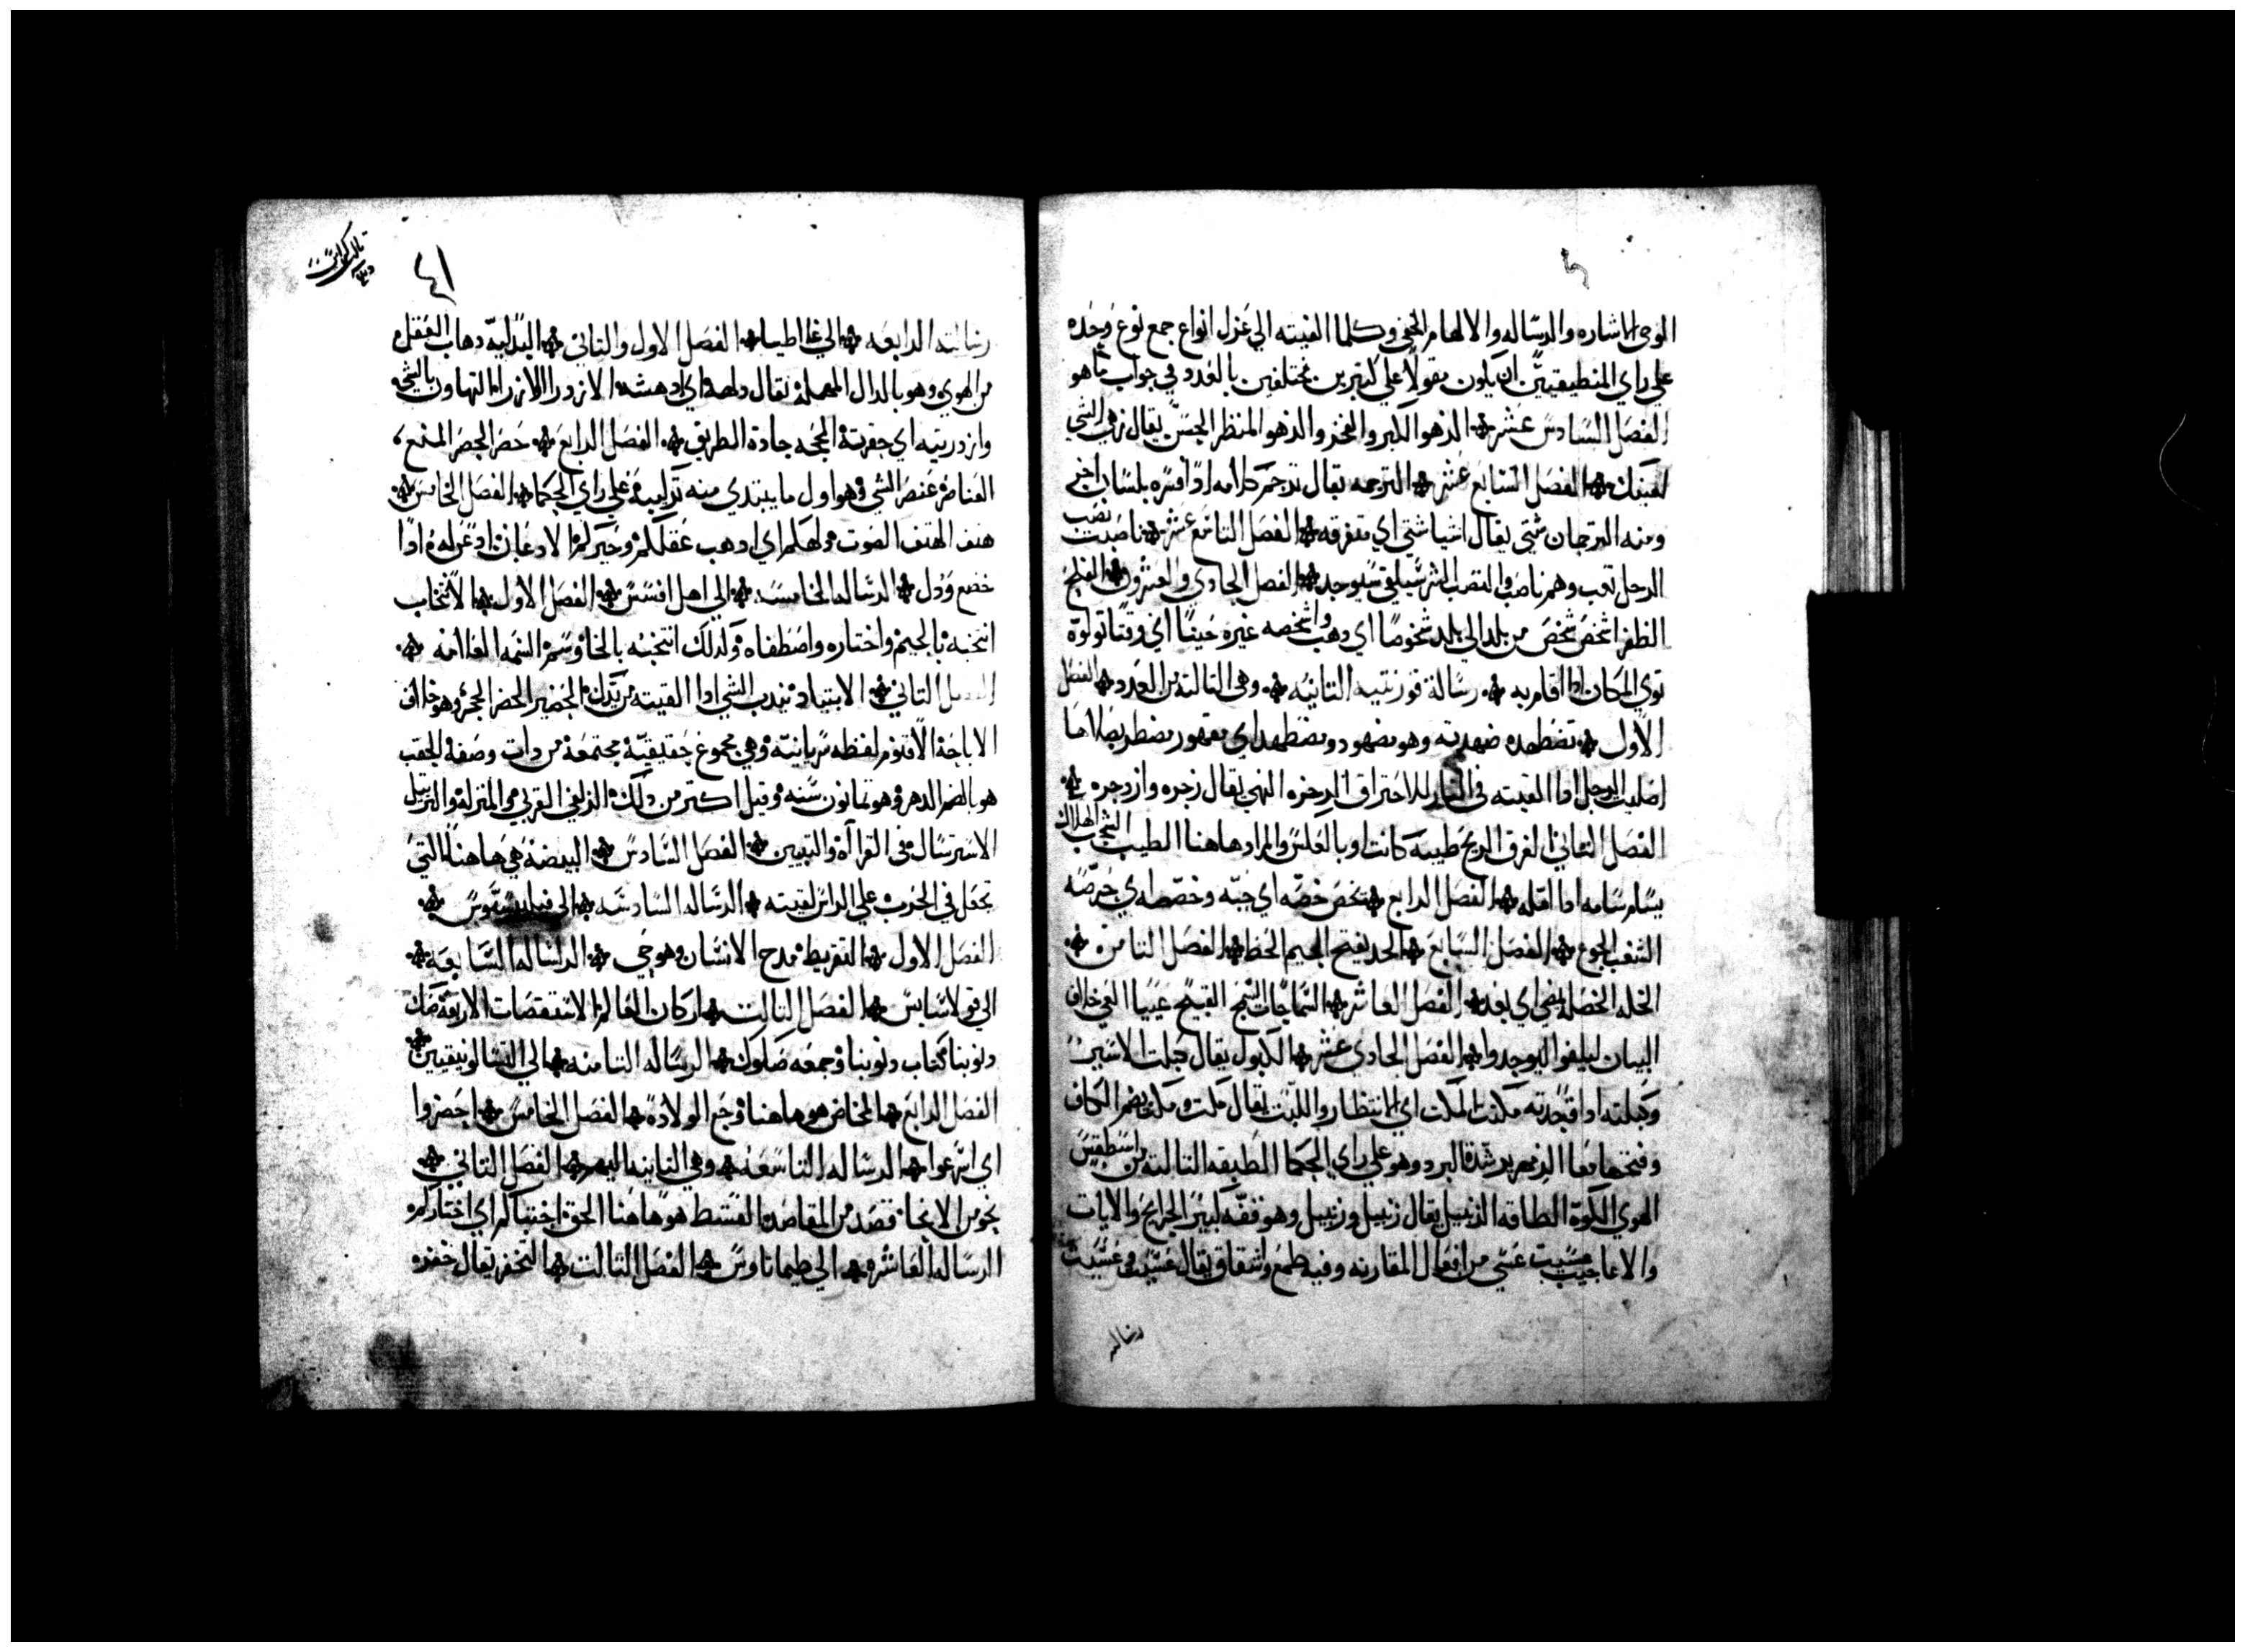 الوحى الاشاره والرساله والالهام الخفي وكلما القيته الي غيرل انواع جمع نوع وحده
علي راي المنطيقيين ان يكون مقولا علي كتيرين مختلفين بالعدد في جواب ما هو
الفصل السادس عشر الزهو الكبر والفخر والزهو المنظر الحسن يقال زهي الشي
لعينك الفصل السابع عشر الترجمه يقال ترجم كلامه اذا فسره بلسان اخر
ومنه الترجمان شتي يقال اشيا شتي اي متفرقه الفصل التامع عشر ناصبت نصب
الرجل تعب وهم ناصب والنصب الشر سيلقي سيوجد الفصل الحادي والعشرون الفلج
الظفر اشخص شخص من بلد الي بلد شخوصا اي دهب واشخصه غيره حينا اي وقتا تولوه
توي المكان ادا اقام به رسالة قورنتيه التانيه وهي التالته من العدد الفصل
الاول تضطهده ضهدته وهو مضهود ومضطهد اي مقهور مضطر بصلاها
اصليت الرجل ادا القيته في النار للاحتراق الزجره النهي يقال زجره وازدجره
الفصل التاني العرف الريح طيبه كانت او بالعكس والمراد هاهنا الطيب الشجب الهلاك
يسام سامه ادا امله الفصل الرابع تحض حضه اي حته وحضضه اي حرضه
الشغب الجوع الفصل السابع الجد بفتح الجيم الحظ الفصل التامن
الخله الخصله نفي اي بعد الفصل العاشر السماجات السمج القبيح عييا العي خلاف
البيان ليلفوا ليوجدوا الفصل الحادي عشر الكبول يقال كبلت الاسير
وكبلته ادا قيدته مكتت المكت اي الانتظار واللبت يقال مكت ومكت بضم الكاف
وفتحها معا الزمهرير شدة البرد وهو علي راي الحكما الطبقه التالته من اسطقس
الهوي الكوة الطاقه الزنبيل يقال زنبيل وزبيل وهو قفه كبير الجرايح والايات
والاعاجيب عسيت عسي من افعال المقاربه وفيه طمع واشفاق يقال عسيت وعسيت
رساله
تالت كراس
٤١
رسالته الرابعه الي غلاطيا الفصل الاول والتاني البدليه دهاب العقل
من الهوي وهو بالدال المهمله يقال دلهه اي ادهشه الازدرا الازرا التهاون بالشي
وازدريته اي حقرته المحجه جادة الطريق الفصل الرابع حصر الحصر المنع
العناصر عنصر الشي وهو اول ما يبتدي منه تركيبه علي راي الحكما الفصل الخامس
هتف الهتف الصوت دلهكم اي ادهب عقلكم وحيركم الادعان ادعن له ادا
خضع ودل الرساله الخامسه الي اهل افسس الفصل الاول الانتخاب
انتجبه بالجيم اختاره واصطفاه وكدلك انتخبه بالخا وسم السمه العلامه
الفصل التاني الابتياد نيدب الشي ادا القيته من يدك الحضير الحضر الحجر وهو خلاف
الاباحة الاقنوم لفظه سريانيه وهي مجموع حقيقيه مجتمعة من دات وصفه الحقب
هو بالضم الدهر وهو تمانون سنه وقيل اكتر من دلك الزلفي القربي والمنزله والترتيل
الاسترسال في القراة والتبيين الفصل السادس البيضه هي هاهنا التي
تجعل في الحرب علي الراس لقيته الرساله السادسه الي فيليبسيوس
الفصل الاول التقريط مدح الانسان وهو حي الرساله السابعه
الي قولاسايس الفصل التالت اركان العالم الاستقصات الاربعه صك
دنوبنا كتاب دنوبنا وجمعه صكوك الرساله التامنه الي التسالونيقيين
الفصل الرابع المخاض هو هاهنا وجع الولادة الفصل الخامس احضروا
اي اسرعوا الرساله التاسعه وهي التانيه اليهم الفصل التاني
نحو من الانحا قصد من المقاصد القسط هو هاهنا الحق اجتباكم اي اختاركم
الرساله العاشره الي طيماتاوس الفصل التالت التخفر يقال خفره